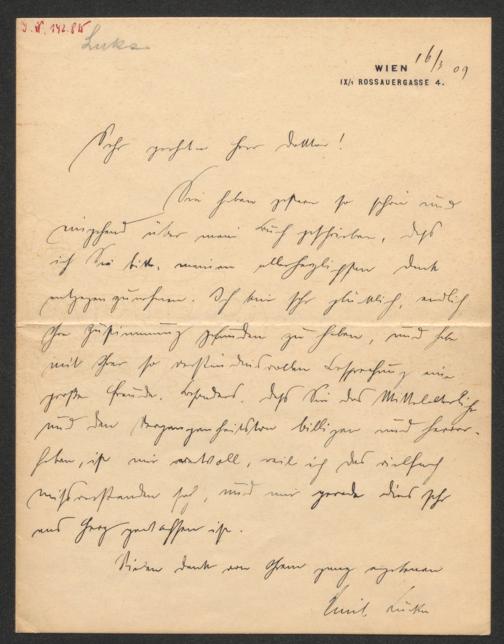 I. N. 142.815
Lucka
WIEN 16/3 09
IX/1 ROSSAUERGASSE 4.
Sehr geehrter Herr Doktor!
Sie haben gestern so schön und
eingehend über mein Buch geschrieben, daß
ich Sie bitte, meinen allerherzlichsten Dank
entgegenzunehmen. Ich bin sehr glücklich, endlich
Ihre Zustimmung gefunden zu haben, und habe
mit Ihrer so verständnisvollen Besprechung eine
große Freude. Besonders, daß Sie das Mittelalterliche
und den Vergangenheitston billigen und hervor-
heben, ist mir wertvoll, weil ich das vielfach
mißverstanden sah, und mir gerade dies sehr
ans Herz gewachsen ist.
Vielen Dank von Ihrem ganz ergebenen
Emil Lucka